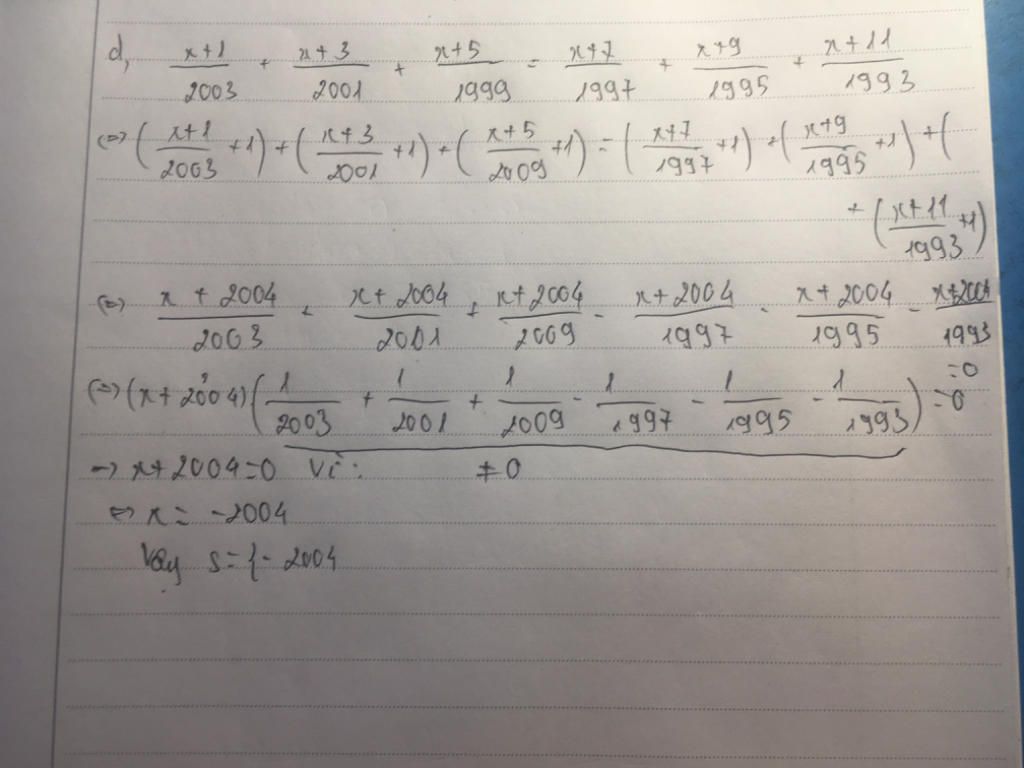 d, (x+1)/2003 + (x+3)/2001 + (x+5)/1999 = (x+7)/1997 + (x+9)/1995 + (x+11)/1993
(=) ((x+1)/2003 +1) + ((x+3)/2001 +1) + ((x+5)/2009 +1) = ((x+7)/1997 +1) + ((x+9)/1995 +1) + (
+ ((x+11)/1993 +1)
(=) (x+2004)/2003 + (x+2004)/2001 + (x+2004)/2009 - (x+2004)/1997 - (x+2004)/1995 - (x+2004)/1993
=0
(=) (x+2004)(1/2003 + 1/2001 + 1/2009 - 1/1997 - 1/1995 - 1/1993) =0
→ x+2004=0 Vì: ≠0
⇔ x = -2004
Vậy S={-2004